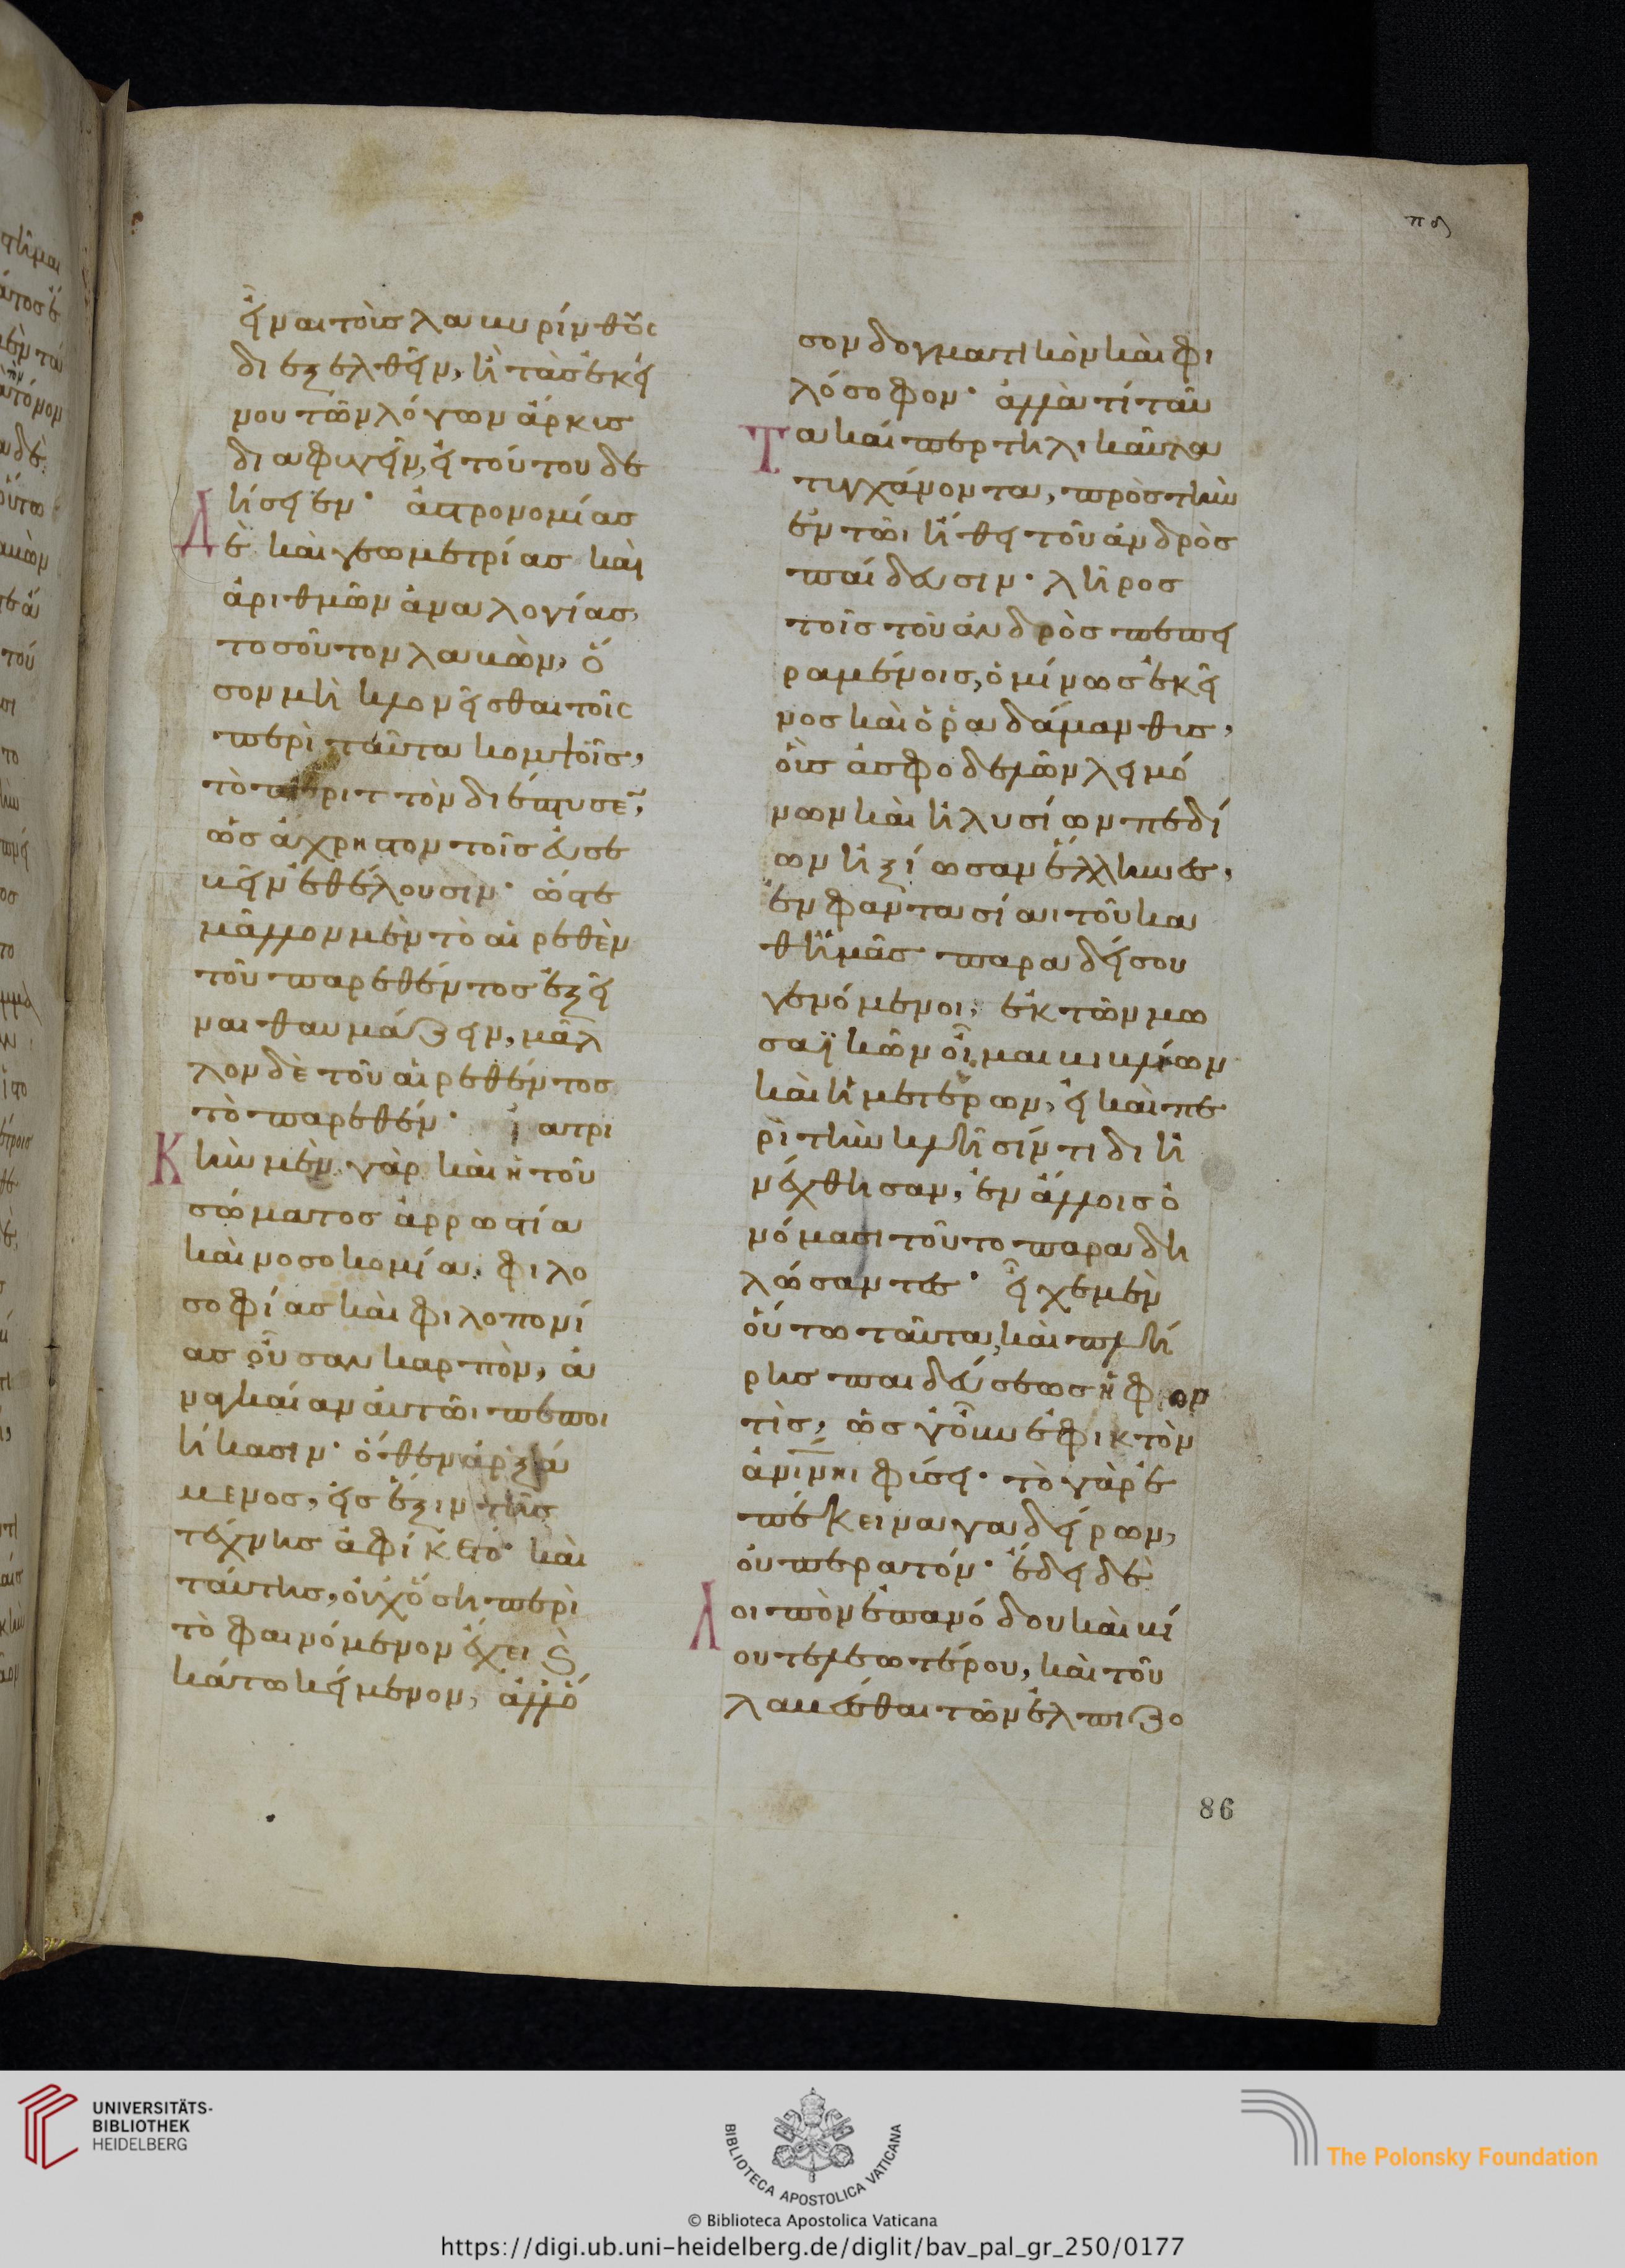 πδ
εῖναι τοὺς λαβυρίνθους
διεξελθεῖν, ἢ τὰς ἐκεί
νου τῶν λόγων ἄρκυς
διαφυγεῖν, εἰ τούτου δε
ήσειεν· ἀστρονομίας
Δὲ καὶ γεωμετρίας καὶ
ἀριθμῶν ἀναλογίας,
τοσοῦτον λαβὼν, ὅ
σον μὴ κλονεῖσθαι τοῖς
περὶ ταῦτα κομψοῖς,
τὸ περιττὸν διέπτυσεν,
ὡς ἄχρηστον τοῖς εὐσε
βεῖν ἐθέλουσιν· ὥστε
μᾶλλον μὲν τὸ αἱρεθὲν
τοῦ παρεθέντος ἐξεῖ
ναι θαυμάζειν, μᾶλ
λον δὲ τοῦ αἱρεθέντος
τὸ παρεθέν· ἰατρι
Κὴν μὲν γὰρ καὶ ἡ τοῦ
σώματος ἀρρωστία
καὶ νοσοκομία, φιλο
σοφίας καὶ φιλοπονί
ας οὖσαν καρπὸν, ἀ
ναγκαίαν αὐτῶι πεποι
ήκασιν· ὅθεν ἀρξά
μενος, εἰς ἕξιν τῆς
τέχνης ἀφίκετο· καὶ
ταύτης, οὐχ ὅση περὶ
τὸ φαινόμενον ἔχει ϗ
κάτω κείμενον, ἀλλ' ὅ
σον δογματικὸν καὶ φι
λόσοφον· ἀλλὰ τί ταῦ
Τα καίπερ τηλικαῦτα
τυγχάνοντα, πρὸς τὴν
ἐν τῶι ἤθει τοῦ ἀνδρὸς
παίδευσιν· λῆρος
τοῖς τοῦ ἀνδρὸς πεπει
ραμένοις, ὁ μίνως ἐκεῖ
νος καὶ ὁ ῥαδάμανθυς,
οὓς ἀσφοδελῶν λειμώ
νων καὶ ἠλυσίων πεδί
ων ἠξίωσαν ἕλληνες,
ἐν φαντασίαι τοῦ κα
θ' ἡμᾶς παραδείσου
γενόμενοι, ἐκ τῶν μω
σαϊκῶν οἶμαι βιβλίων
καὶ ἡμετέρων, εἰ καὶ πε
ρὶ τὴν κλῆσίν τι διη
νέχθησαν, ἐν ἄλλοις ὀ
νόμασι τοῦτο παραδη
λώσαντες· εἶχε μὲν
οὕτω ταῦτα, καὶ πλή
ρης παιδεύσεως ἡ φορ
τὶς, ὡς γοῦν ἐφικτὸν
ἀνίνηι φύσει· τὸ γὰρ ἐ
πέκεινα γαδείρων,
οὐ περατόν· ἔδει δὲ
Λοιπὸν ἐπανόδου καὶ βί
ου τελεωτέρου, καὶ τοῦ
λαβέσθαι τῶν ἐλπιζο
86
UNIVERSITÄTS-
BIBLIOTHEK
HEIDELBERG
BIBLIOTECA APOSTOLICA VATICANA
The Polonsky Foundation
© Biblioteca Apostolica Vaticana
https://digi.ub.uni-heidelberg.de/diglit/bav_pal_gr_250/0177